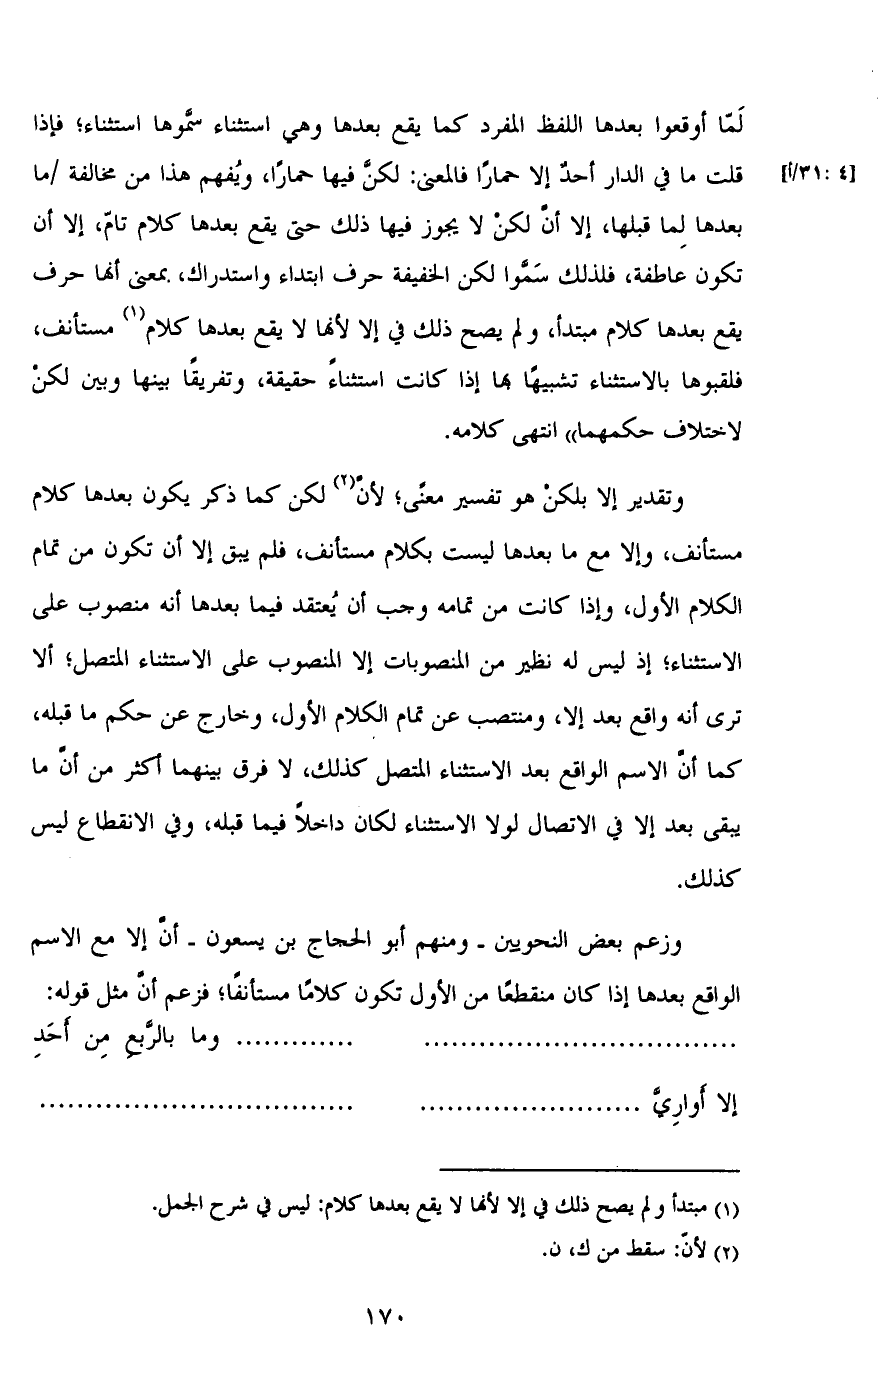 لَمّا أوقعوا بعدها اللفظ المفرد كما يقع بعدها وهي استثناء سمَّوها استثناء؛ فإذا
[٤: ٣١/أ] قلت ما في الدار أحدٌ إلا حمارًا فالمعنى: لكنَّ فيها حمارًا، ويُفهم هذا من مخالفة /ما
بعدها لِما قبلها، إلا أنَّ لكنْ لا يجوز فيها ذلك حتى يقع بعدها كلام تامّ، إلا أن
تكون عاطفة، فلذلك سَمَّوا لكن الخفيفة حرف ابتداء واستدراك، بمعنى أنها حرف
يقع بعدها كلام مبتدأ، ولم يصح ذلك في إلا لأنها لا يقع بعدها كلام(١) مستأنف،
فلقبوها بالاستثناء تشبيهًا بها إذا كانت استثناءً حقيقة، وتفريقًا بينها وبين لكنْ
لاختلاف حكمهما» انتهى كلامه.
وتقدير إلا بلكنْ هو تفسير معنًى؛ لأنّ(٢) لكن كما ذكر يكون بعدها كلام
مستأنف، وإلا مع ما بعدها ليست بكلام مستأنف، فلم يبق إلا أن تكون من تمام
الكلام الأول، وإذا كانت من تمامه وجب أن يُعتقد فيما بعدها أنه منصوب على
الاستثناء؛ إذ ليس له نظير من المنصوبات إلا المنصوب على الاستثناء المتصل؛ ألا
ترى أنه واقع بعد إلا، ومنتصب عن تمام الكلام الأول، وخارج عن حكم ما قبله،
كما أنَّ الاسم الواقع بعد الاستثناء المتصل كذلك، لا فرق بينهما أكثر من أنَّ ما
يبقى بعد إلا في الاتصال لولا الاستثناء لكان داخلاً فيما قبله، وفي الانقطاع ليس
كذلك.
وزعم بعض النحويين ـ ومنهم أبو الحجاج بن يسعون ـ أنَّ إلا مع الاسم
الواقع بعدها إذا كان منقطعًا من الأول تكون كلامًا مستأنفًا؛ فزعم أنَّ مثل قوله:
................................. ............. وما بالرَّبعِ مِن أَحَدِ
إلا أَوارِيَّ ........................ .................................
(١) مبتدأ ولم يصح ذلك في إلا لأنها لا يقع بعدها كلام: ليس في شرح الجمل.
(٢) لأنّ: سقط من ك، ن.
١٧٠